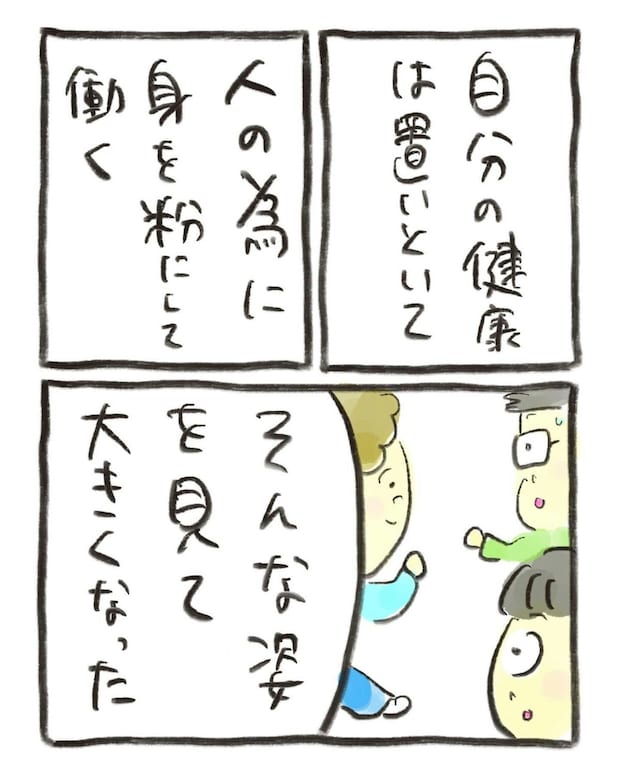 自分の健康
は置いといて
人の為に
身を粉にして
働く
そんな姿
を見て
大きくなった